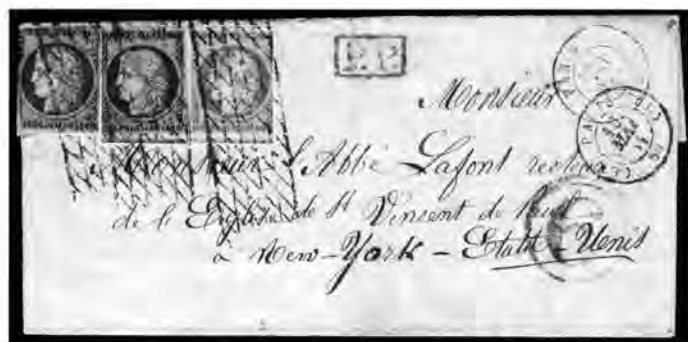 P.P.
PARIS
PARIS
MARS
Monsieur
Monsieur l'Abbé Lafont recteur
de l'Eglise de St Vincent de Paul
à New-York - Etats-Unis